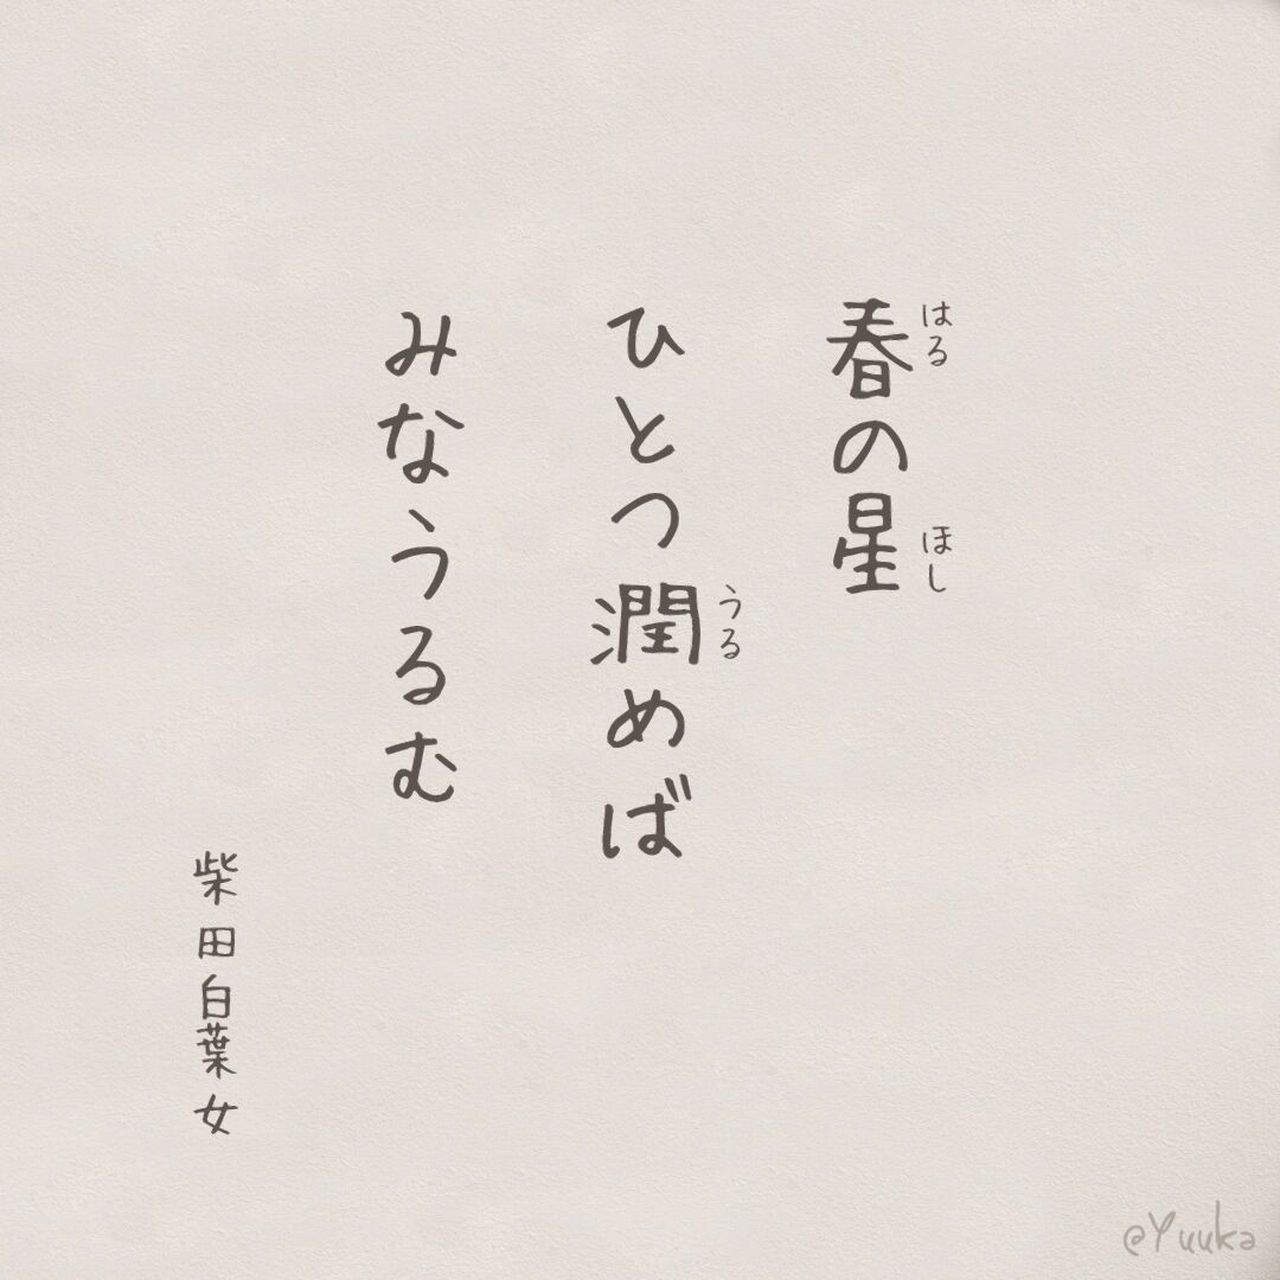 春の星
はる
ほし
ひとつ潤めば
うる
みなうるむ
柴田白葉女
@Yuuka